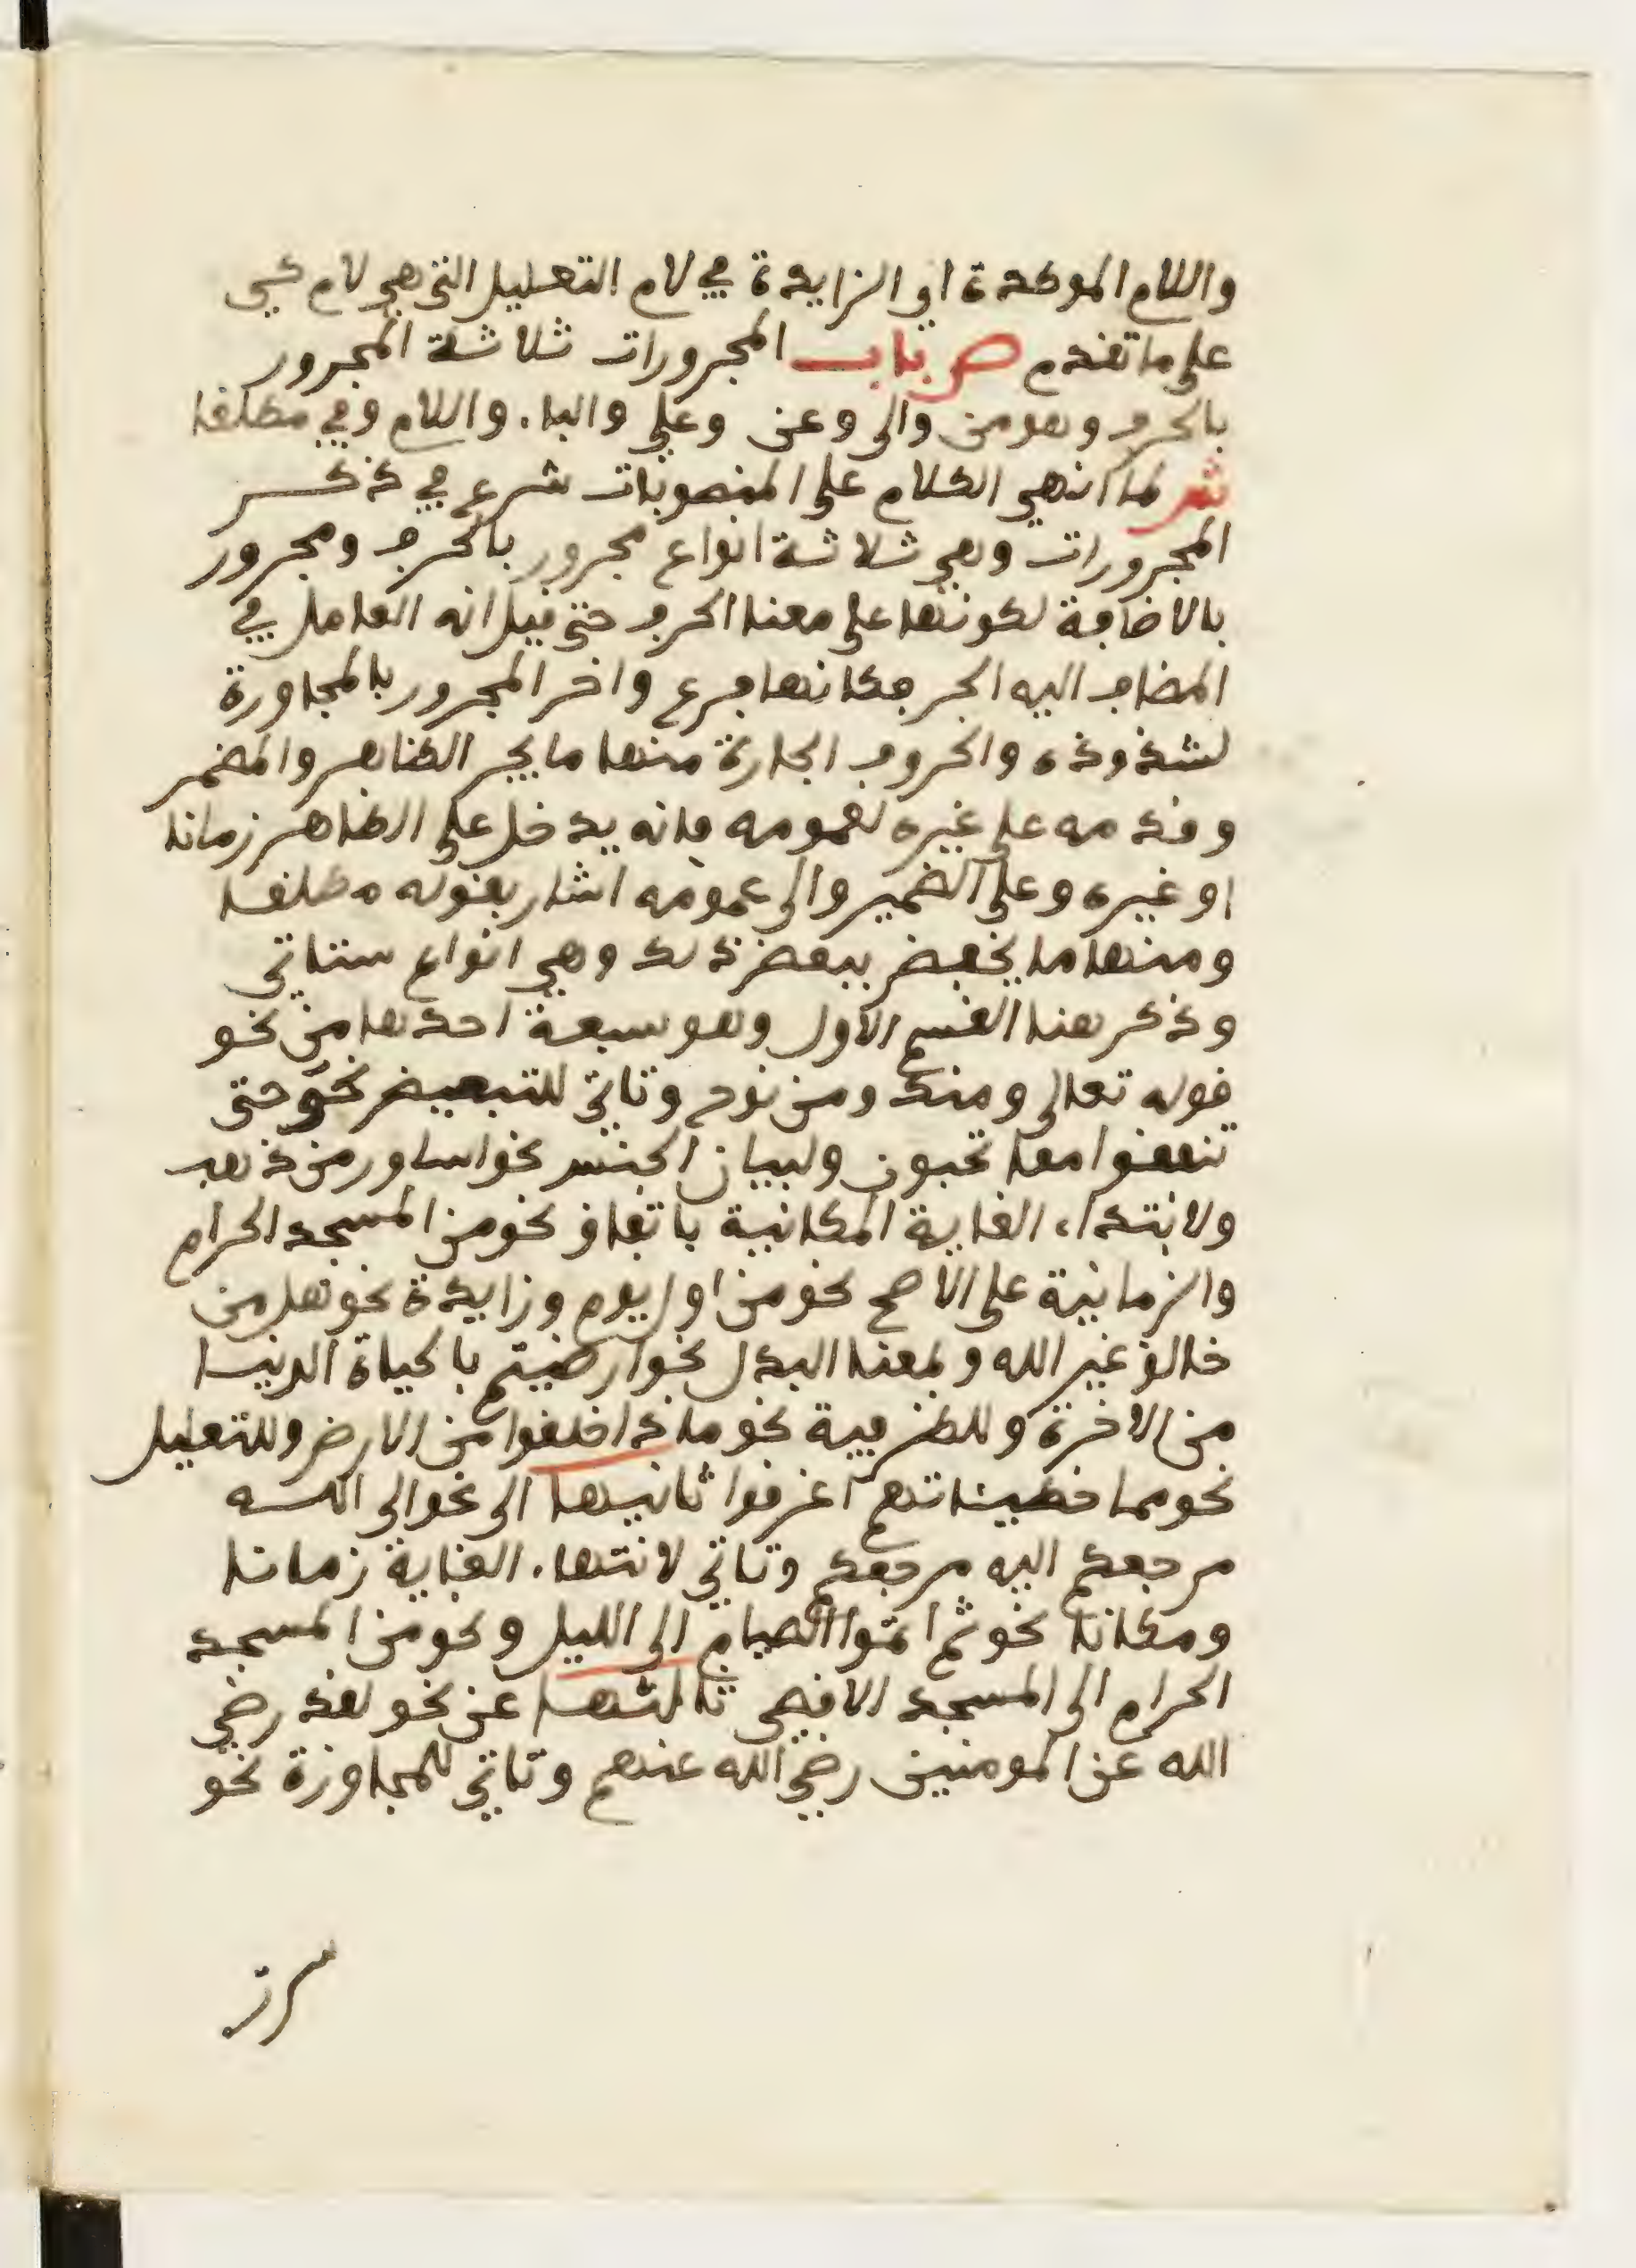 واللام الموكدة او الزايدة في لام التعليل التي هي لام كي
على ما تقدم ص باب المجرورات ثلاثة المجرور
بالحرف وهو من والى وعن وعلى والباء واللام وفي مطلقا
ش لما انهى الكلام على المنصوبات شرع في ذكر
المجرورات وهي ثلاثة انواع مجرور بالحرف ومجرور
بالاضافة لكونها على معنا الحرف حتى قيل انه العامل في
المضاف اليه الجر فكانها فرع واخر المجرور بالمجاورة
لشذوذه والحروف الجارة منها ما يجر الظاهر والمضمر
وقدمه على غيره لعمومه فانه يدخل على الظاهر زمانا
او غيره وعلى الضمير والى عمومه اشار بقوله مطلقا
ومنها ما يخفض ببعض ذلك وهي انواع ستاتي
وذكر هنا القسم الاول وهو سبعة احدها من نحو
قوله تعالى ومنك ومن نوح وتاتي للتبعيض نحو حتى
تنفقوا مما تحبون ولبيان الجنس نحو اساور من ذهب
ولابتداء الغاية المكانية باتفاق نحو من المسجد الحرام
والزمانية على الاصح نحو من اول يوم وزايدة نحو هل من
خالق غير الله وبمعنا البدل نحو ارضيتم بالحياة الدنيا
من الاخرة وللظرفية نحو ماذا خلقوا من الارض وللتعليل
نحو مما خطيئاتهم اغرقوا ثانيها الى نحو الى الله
مرجعكم اليه مرجعكم وتاتي لانتهاء الغاية زمانا
ومكانا نحو ثم اتموا الصيام الى الليل ونحو من المسجد
الحرام الى المسجد الاقصى ثالثها عن نحو لقد رضي
الله عن المومنين رضي الله عنهم وتاتي للمجاوزة نحو